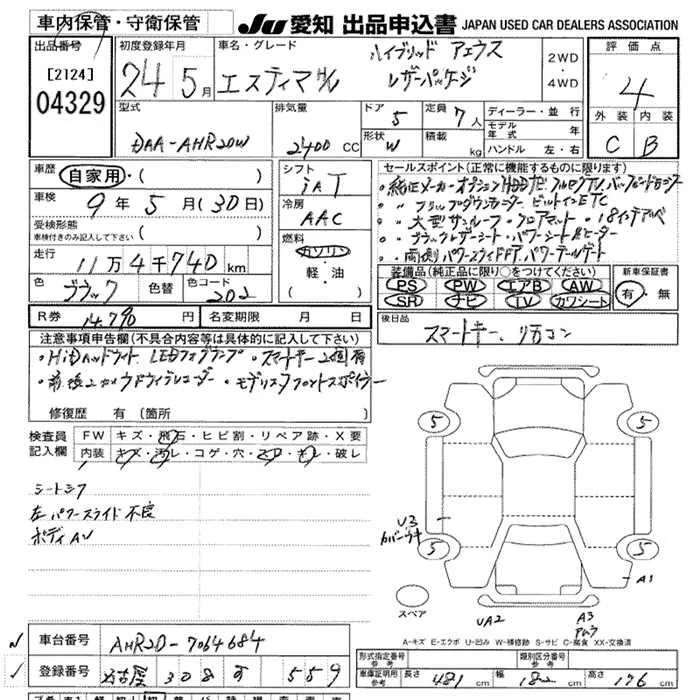 車内保管・守衛保管
JU 愛知 出品申込書 JAPAN USED CAR DEALERS ASSOCIATION
出品番号
[2124]
04329
初度登録年月
24 5月
車名・グレード
エスティマ H/V
ハイブリッド アエラス
レザーパッケージ
2WD
・
4WD
評価点
4
外装 内装
C B
型式
DAA-AHR20W
排気量
2400 CC
ドア
5
定員
7人
形状
W
積載
kg
ディーラー・並行
モデル年式 年
ハンドル 左・右
車歴 自家用・( )
車検 9年 5月(30日)
受検形態
車検付きのみ記入して下さい ( )
走行
11万4千740km
色 ブラック 色替 色コード 202
シフト
IAT
冷房
AAC
燃料
ガソリン
・
軽・油
セールスポイント(正常に機能するものに限ります)
・純正メーカーオプションHDDナビ フルセグTV バックガイドモニター
・〃 フリップダウンモニター ビルトインETC
・〃 大型サンルーフ ・フロアマット ・18インチアルミ
・〃 ブラックレザーシート・パワーシート&ヒーター
・〃 両側パワースライドドア パワーテールゲート
装備品(純正品に限り○をつけてください)
PS PW エアB AW
SR ナビ TV カワシート
新車保証書
有・無
R券 14,790円 名変期限 月 日
後日品
スマートキー、リモコン
注意事項申告欄(不具合内容等は具体的に記入して下さい)
・HiDヘッドライト LEDフォグランプ ・スマートキー2個有
・前後2カメラドライブレコーダー ・モデリスタフロントスポイラー
修復歴 有(箇所 )
検査員記入欄
FW キズ・飛石・ヒビ割・リペア跡・X要
内装 キズ・汚レ・コゲ・穴・スレ・キレ・破レ
シートシワ
左パワースライド不良
ボディAU
5 5
5 5
U3
カバーキ
A1
スペア
UA2
A3
A-キズ E-エクボ U-凹み W-補修跡 S-サビ C-腐食 XX-交換済
車台番号 AHR20-7064684
登録番号 名古屋 308 す 559
形式指定番号 参考
類別区分番号 参考
車庫証明用 参考 長さ 481cm 幅 182cm 高さ 176